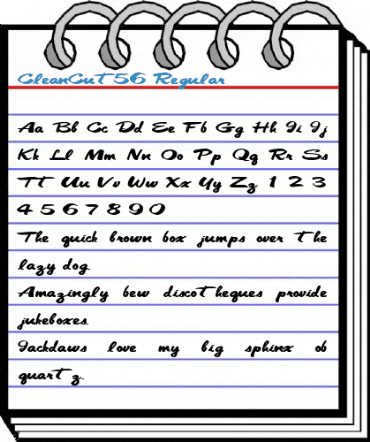 CleanCuT56 Regular
Aa Bb Cc Dd Ee Ff Gg Hh Ii Jj
Kk Ll Mm Nn Oo Pp Qq Rr Ss
Tt Uu Vv Ww Xx Yy Zz 1 2 3
4 5 6 7 8 9 0
The quick brown fox jumps over the
lazy dog.
Amazingly few discotheques provide
jukeboxes.
Jackdaws love my big sphinx of
quartz.